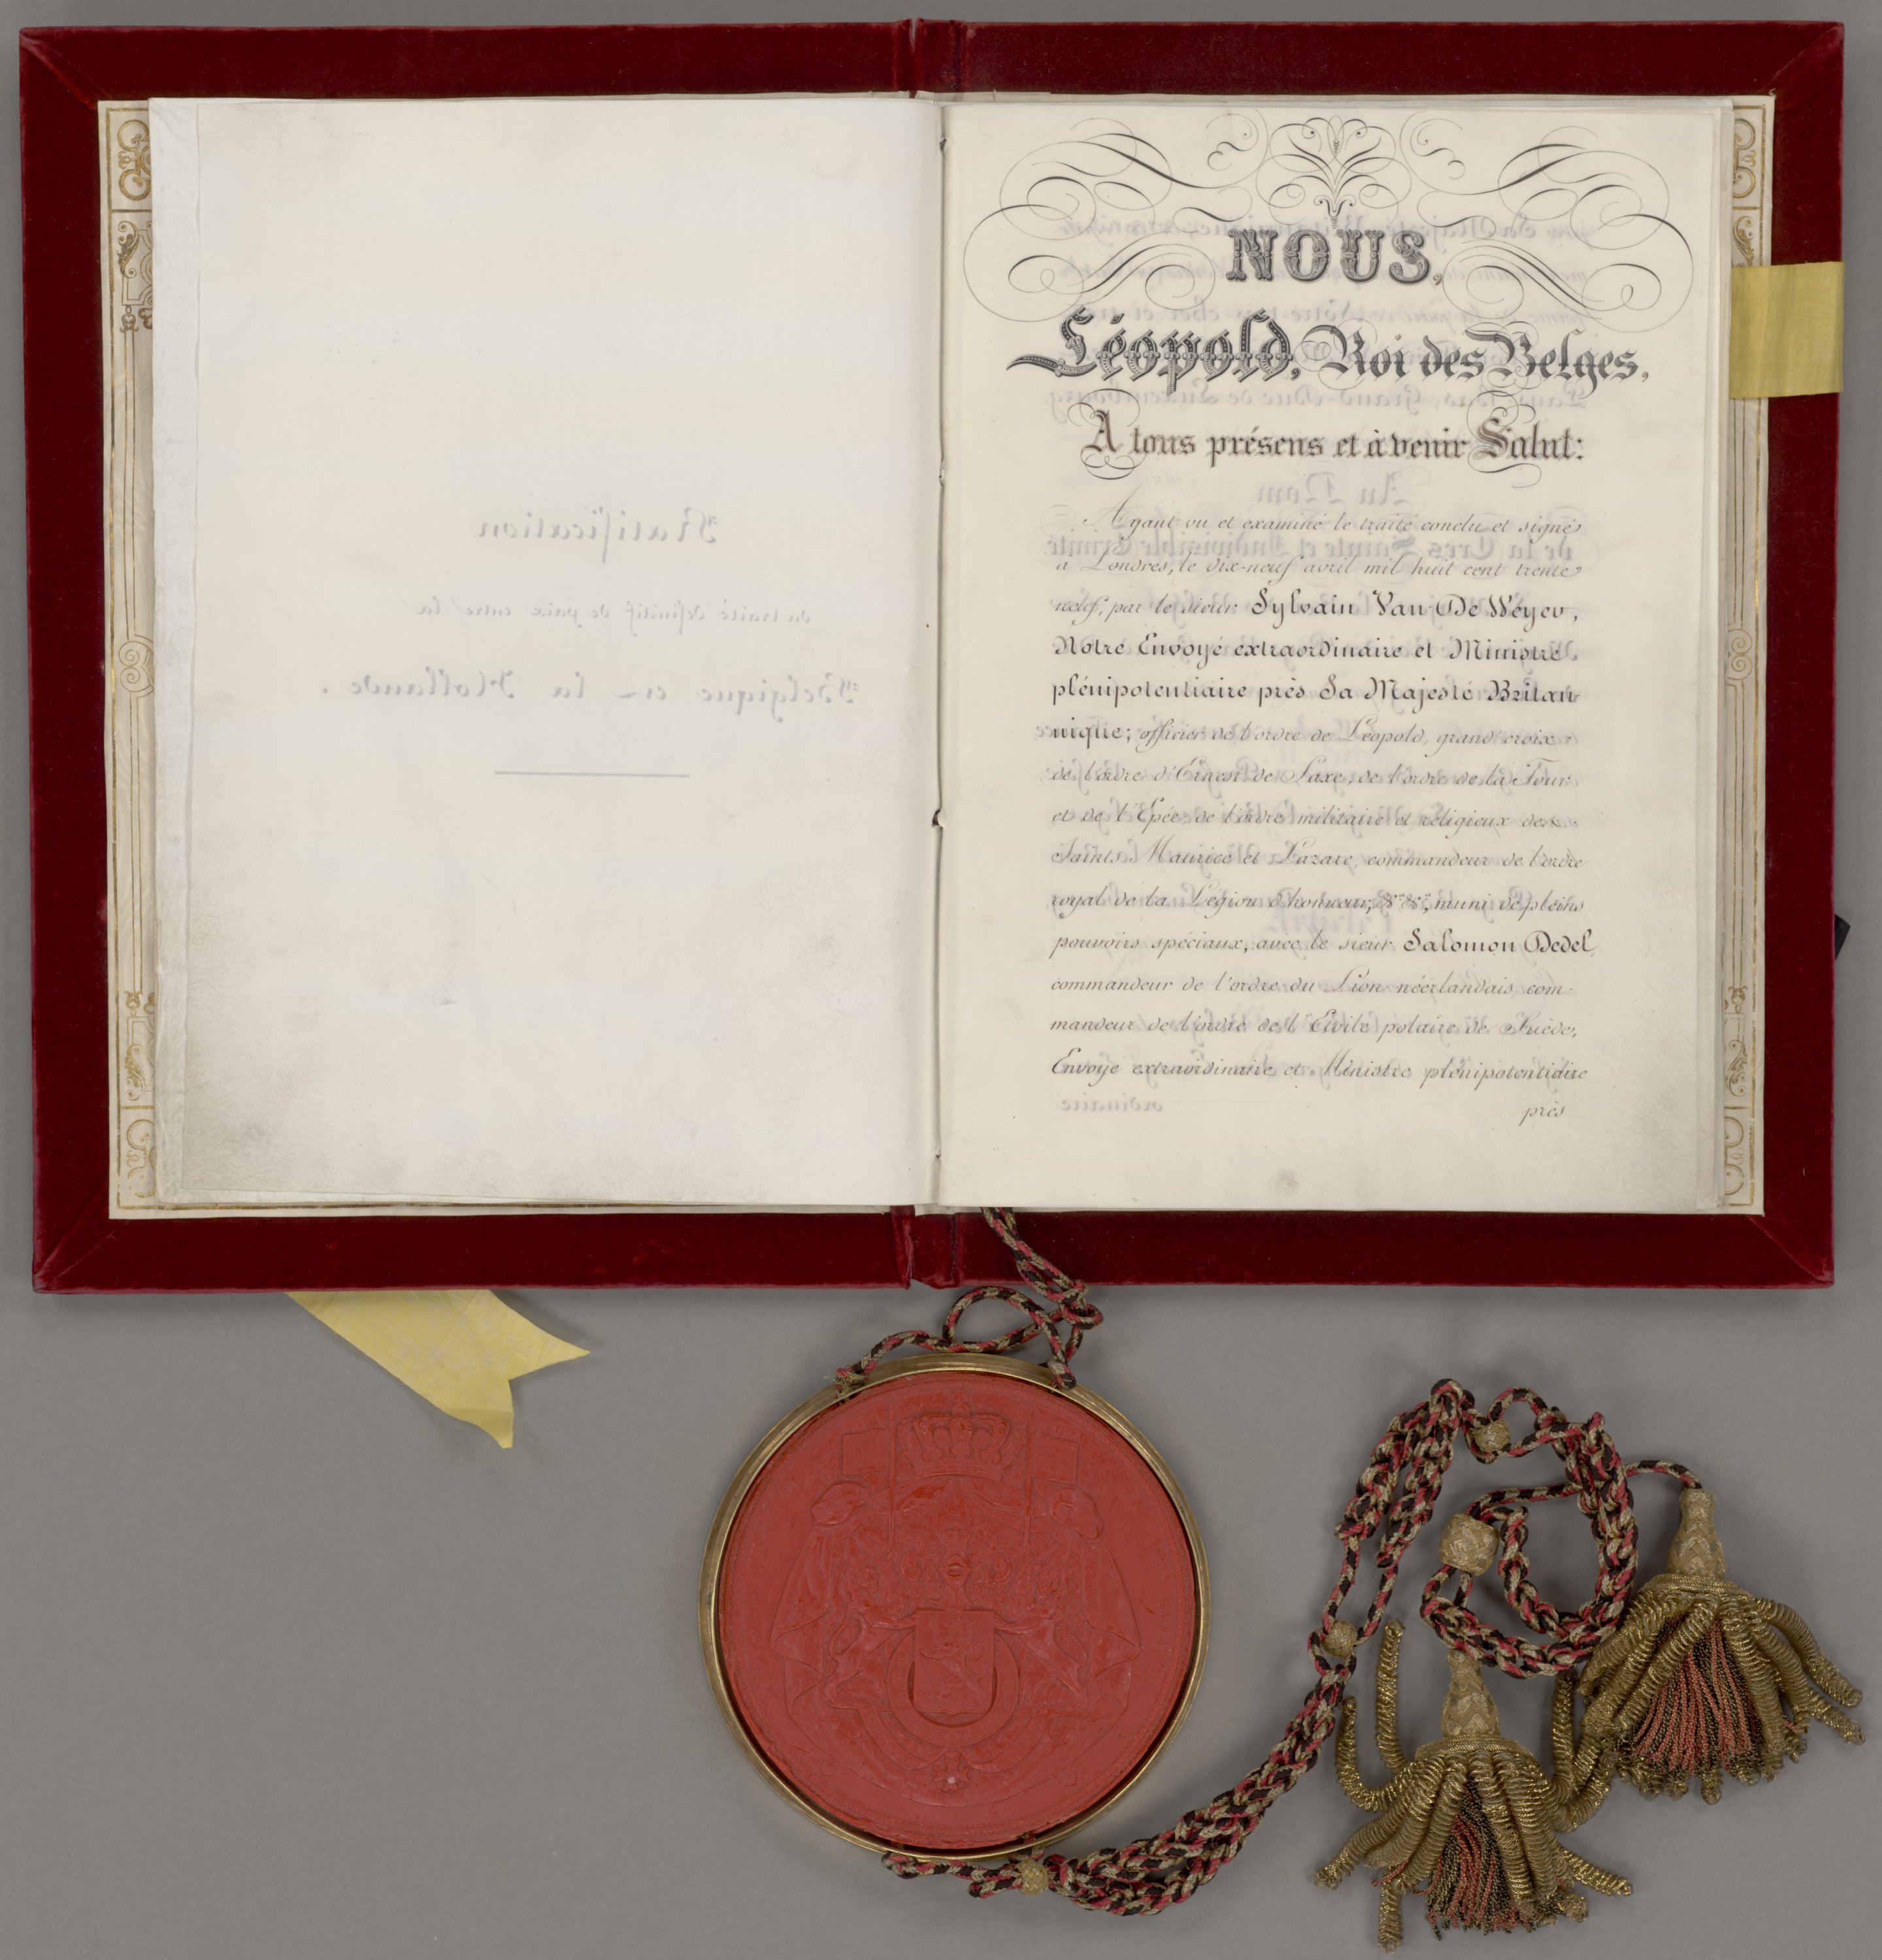 Ratification
du traité définitif de paix entre la
Belgique et la Hollande.
NOUS,
Léopold, Roi des Belges,
A tous présens et à venir Salut:
Ayant vu et examiné le traité conclu et signé
à Londres, le dix-neuf avril mil huit cent trente
neuf, par le sieur Sylvain Van De Weyer,
Notre Envoyé extraordinaire et Ministre
plénipotentiaire près Sa Majesté Britan
nique; officier de l'ordre de Léopold, grand'croix
de l'ordre d'Ernest de Saxe, de l'ordre de la Tour
et de l'Epée, de l'ordre militaire et religieux des
Saints Maurice et Lazare, commandeur de l'ordre
royal de la Légion d'honneur, &a &a, muni de pleins
pouvoirs spéciaux, avec le sieur Salomon Dedel,
commandeur de l'ordre du Lion néerlandais, com-
mandeur de l'ordre de l'Etoile polaire de Suède,
Envoyé extraordinaire et Ministre plénipotentiaire
près